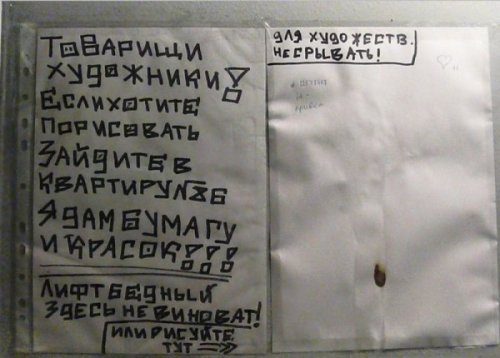 ТОВАРИЩИ
ХУДОЖНИКИ!
ЕСЛИ ХОТИТЕ
ПОРИСОВАТЬ
ЗАЙДИТЕ В
КВАРТИРУ №86
Я ДАМ БУМАГУ
И КРАСОК!!!
ЛИФТ БЕДНЫЙ
ЗДЕСЬ НЕ ВИНОВАТ!
ИЛИ РИСУЙТЕ
ТУТ ⇒
ДЛЯ ХУДОЖЕСТВ.
НЕ СРЫВАТЬ!